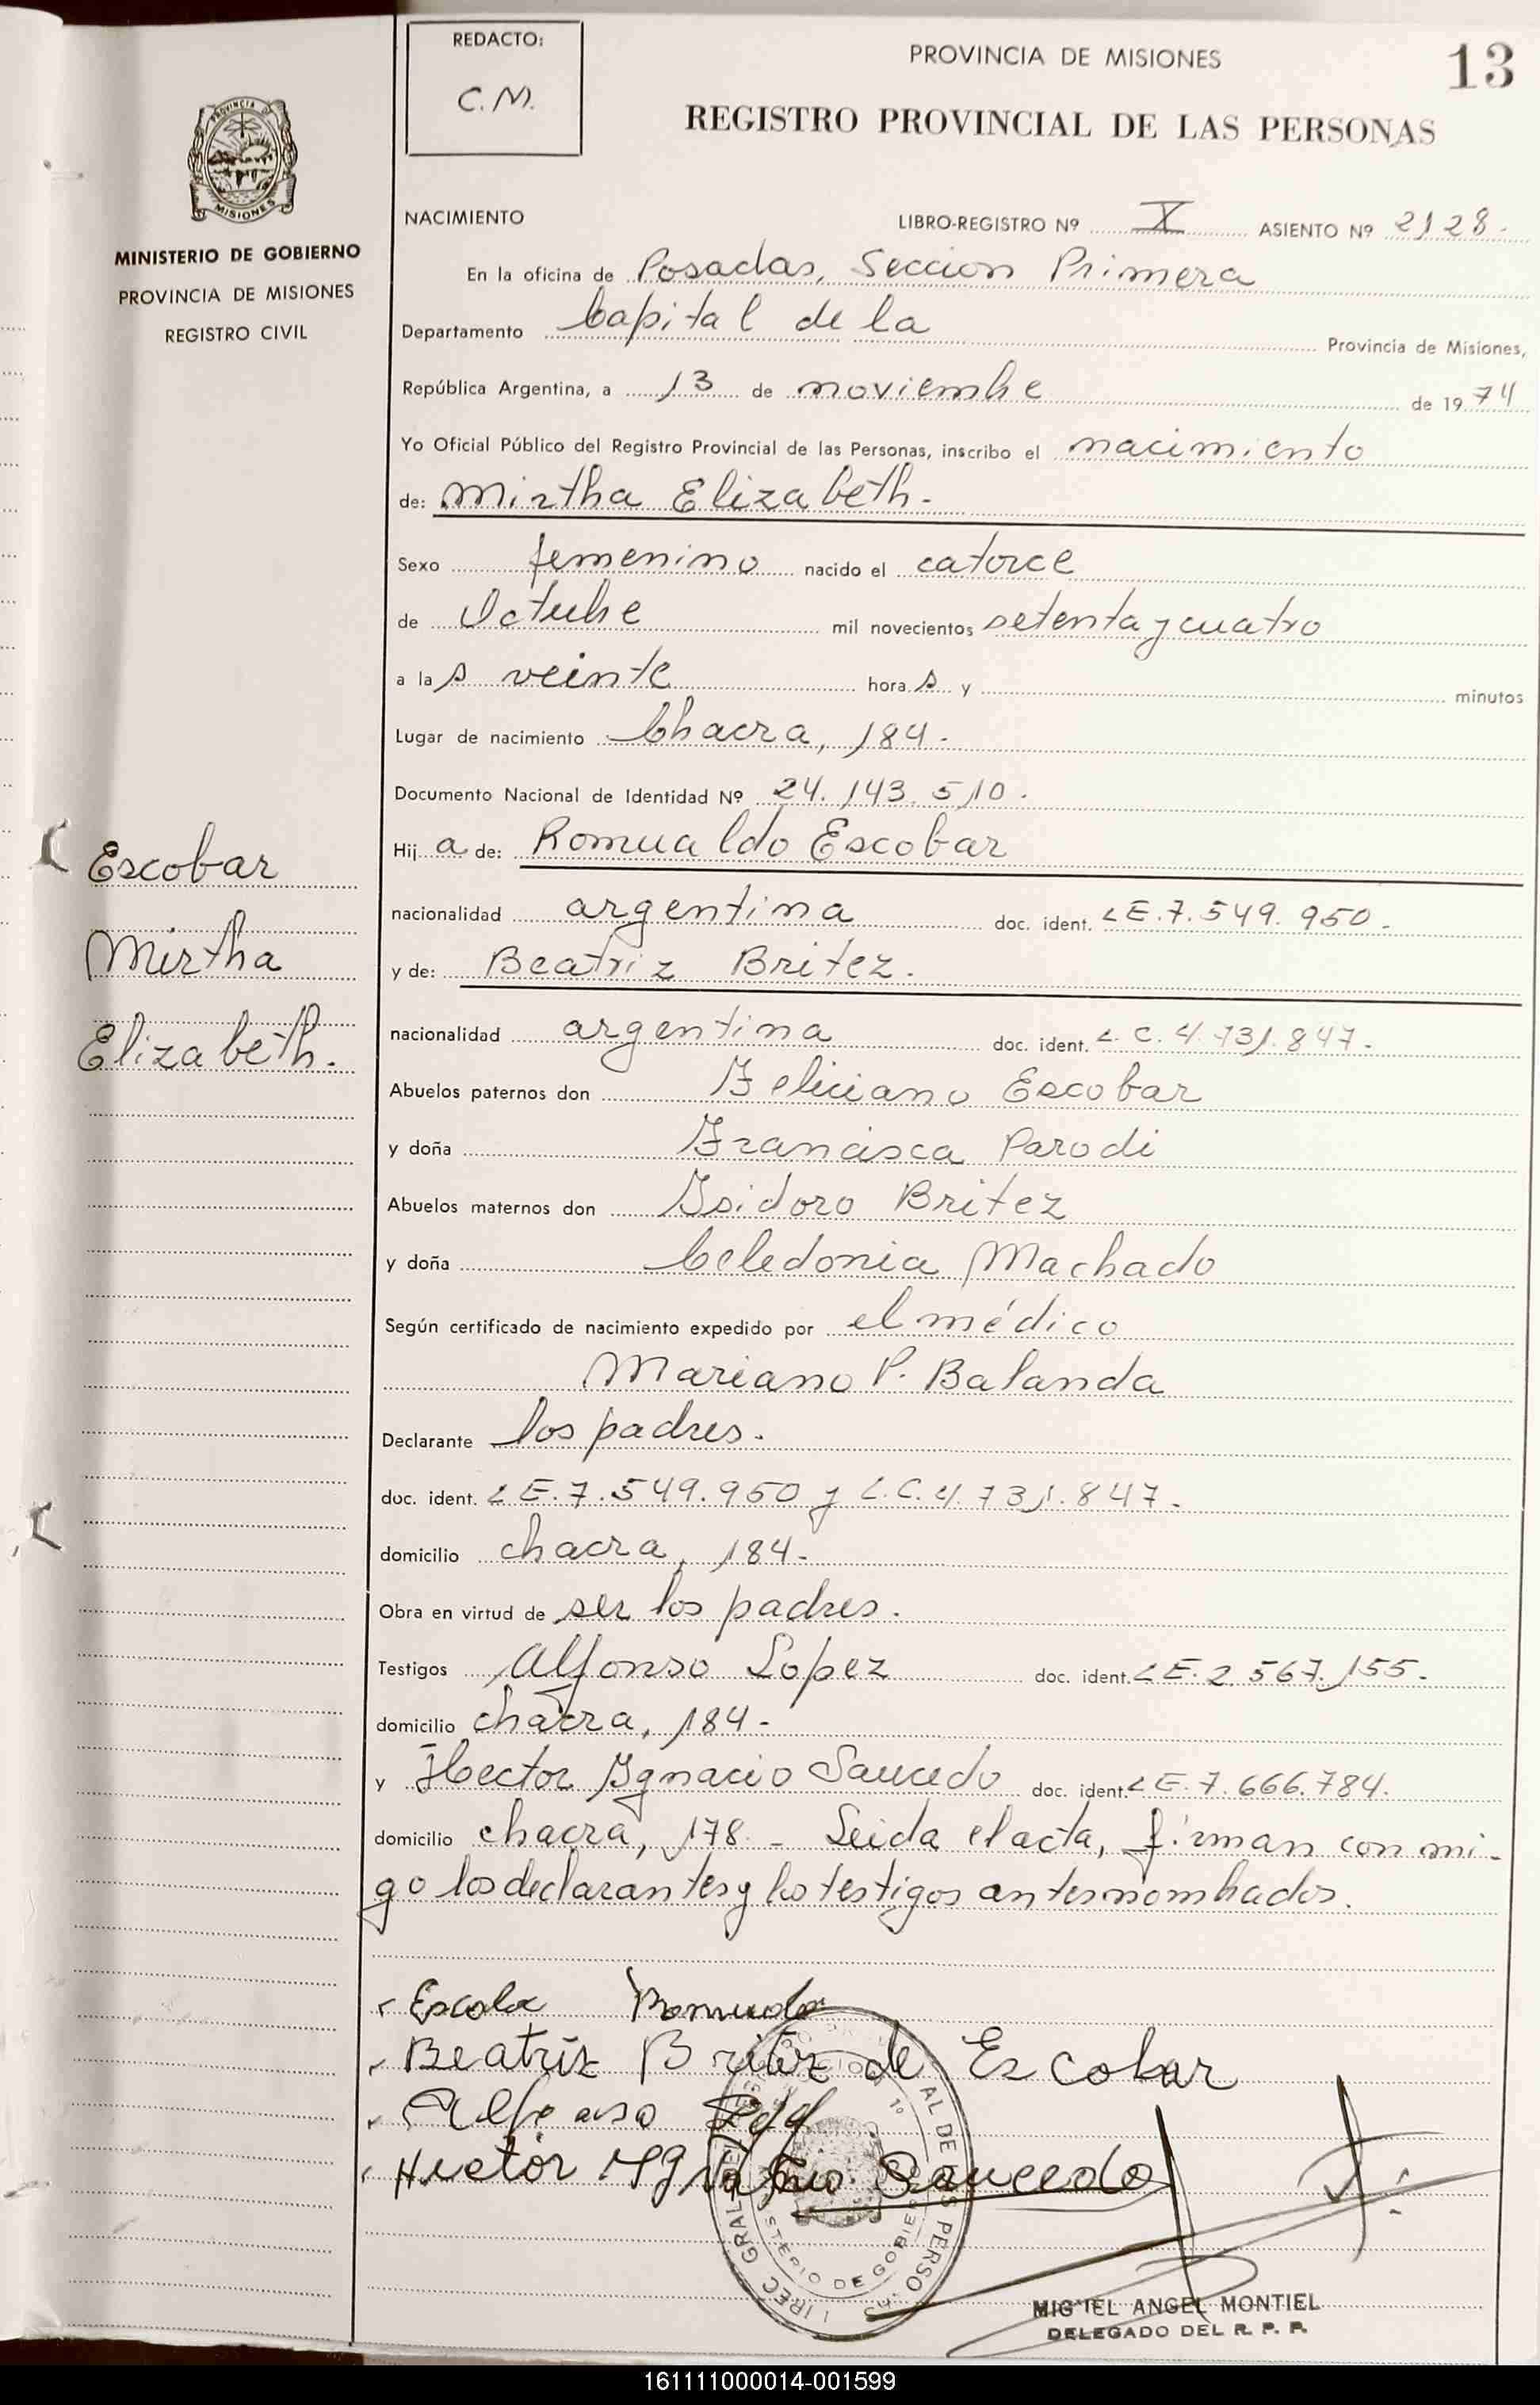 REDACTO:
C.M.
PROVINCIA DE MISIONES
13
REGISTRO PROVINCIAL DE LAS PERSONAS
PROVINCIA DE
MISIONES
MINISTERIO DE GOBIERNO
PROVINCIA DE MISIONES
REGISTRO CIVIL
NACIMIENTO LIBRO-REGISTRO Nº X ASIENTO Nº 2128.
En la oficina de Posadas, Seccion Primera
Departamento Capital de la Provincia de Misiones,
República Argentina, a 13 de noviembre de 1974
Yo Oficial Público del Registro Provincial de las Personas, inscribo el nacimiento
de: Mirtha Elizabeth.
Sexo femenino nacido el catorce
de Octubre mil novecientos setenta y cuatro
a las veinte horas y minutos
Lugar de nacimiento Chacra, 184.
Documento Nacional de Identidad Nº 24.143.510.
Hija de: Romualdo Escobar
nacionalidad argentina doc. ident. LE.7.549.950.
y de: Beatriz Britez.
nacionalidad argentina doc. ident. L.C.4.731.847.
Abuelos paternos don Feliciano Escobar
y doña Francisca Parodi
Abuelos maternos don Isidoro Britez
y doña Celedonia Machado
Según certificado de nacimiento expedido por el médico
Mariano P. Balanda
Declarante los padres.
doc. ident. LE.7.549.950 y L.C.4.731.847.
domicilio chacra, 184.
Obra en virtud de ser los padres.
Testigos Alfonso Lopez doc. ident. LE.2.567.155.
domicilio chacra, 184-
y Hector Ignacio Saucedo doc. ident. LE.7.666.784.
domicilio chacra, 178.- Leida el acta, firman con mi-
go los declarantes y los testigos antesnombrados.
Escobar
Mirtha
Elizabeth.
Beatriz Britez de Escobar
Hector Ignacio Saucedo
MIGUEL ANGEL MONTIEL
DELEGADO DEL R. P. P.
161111000014-001599